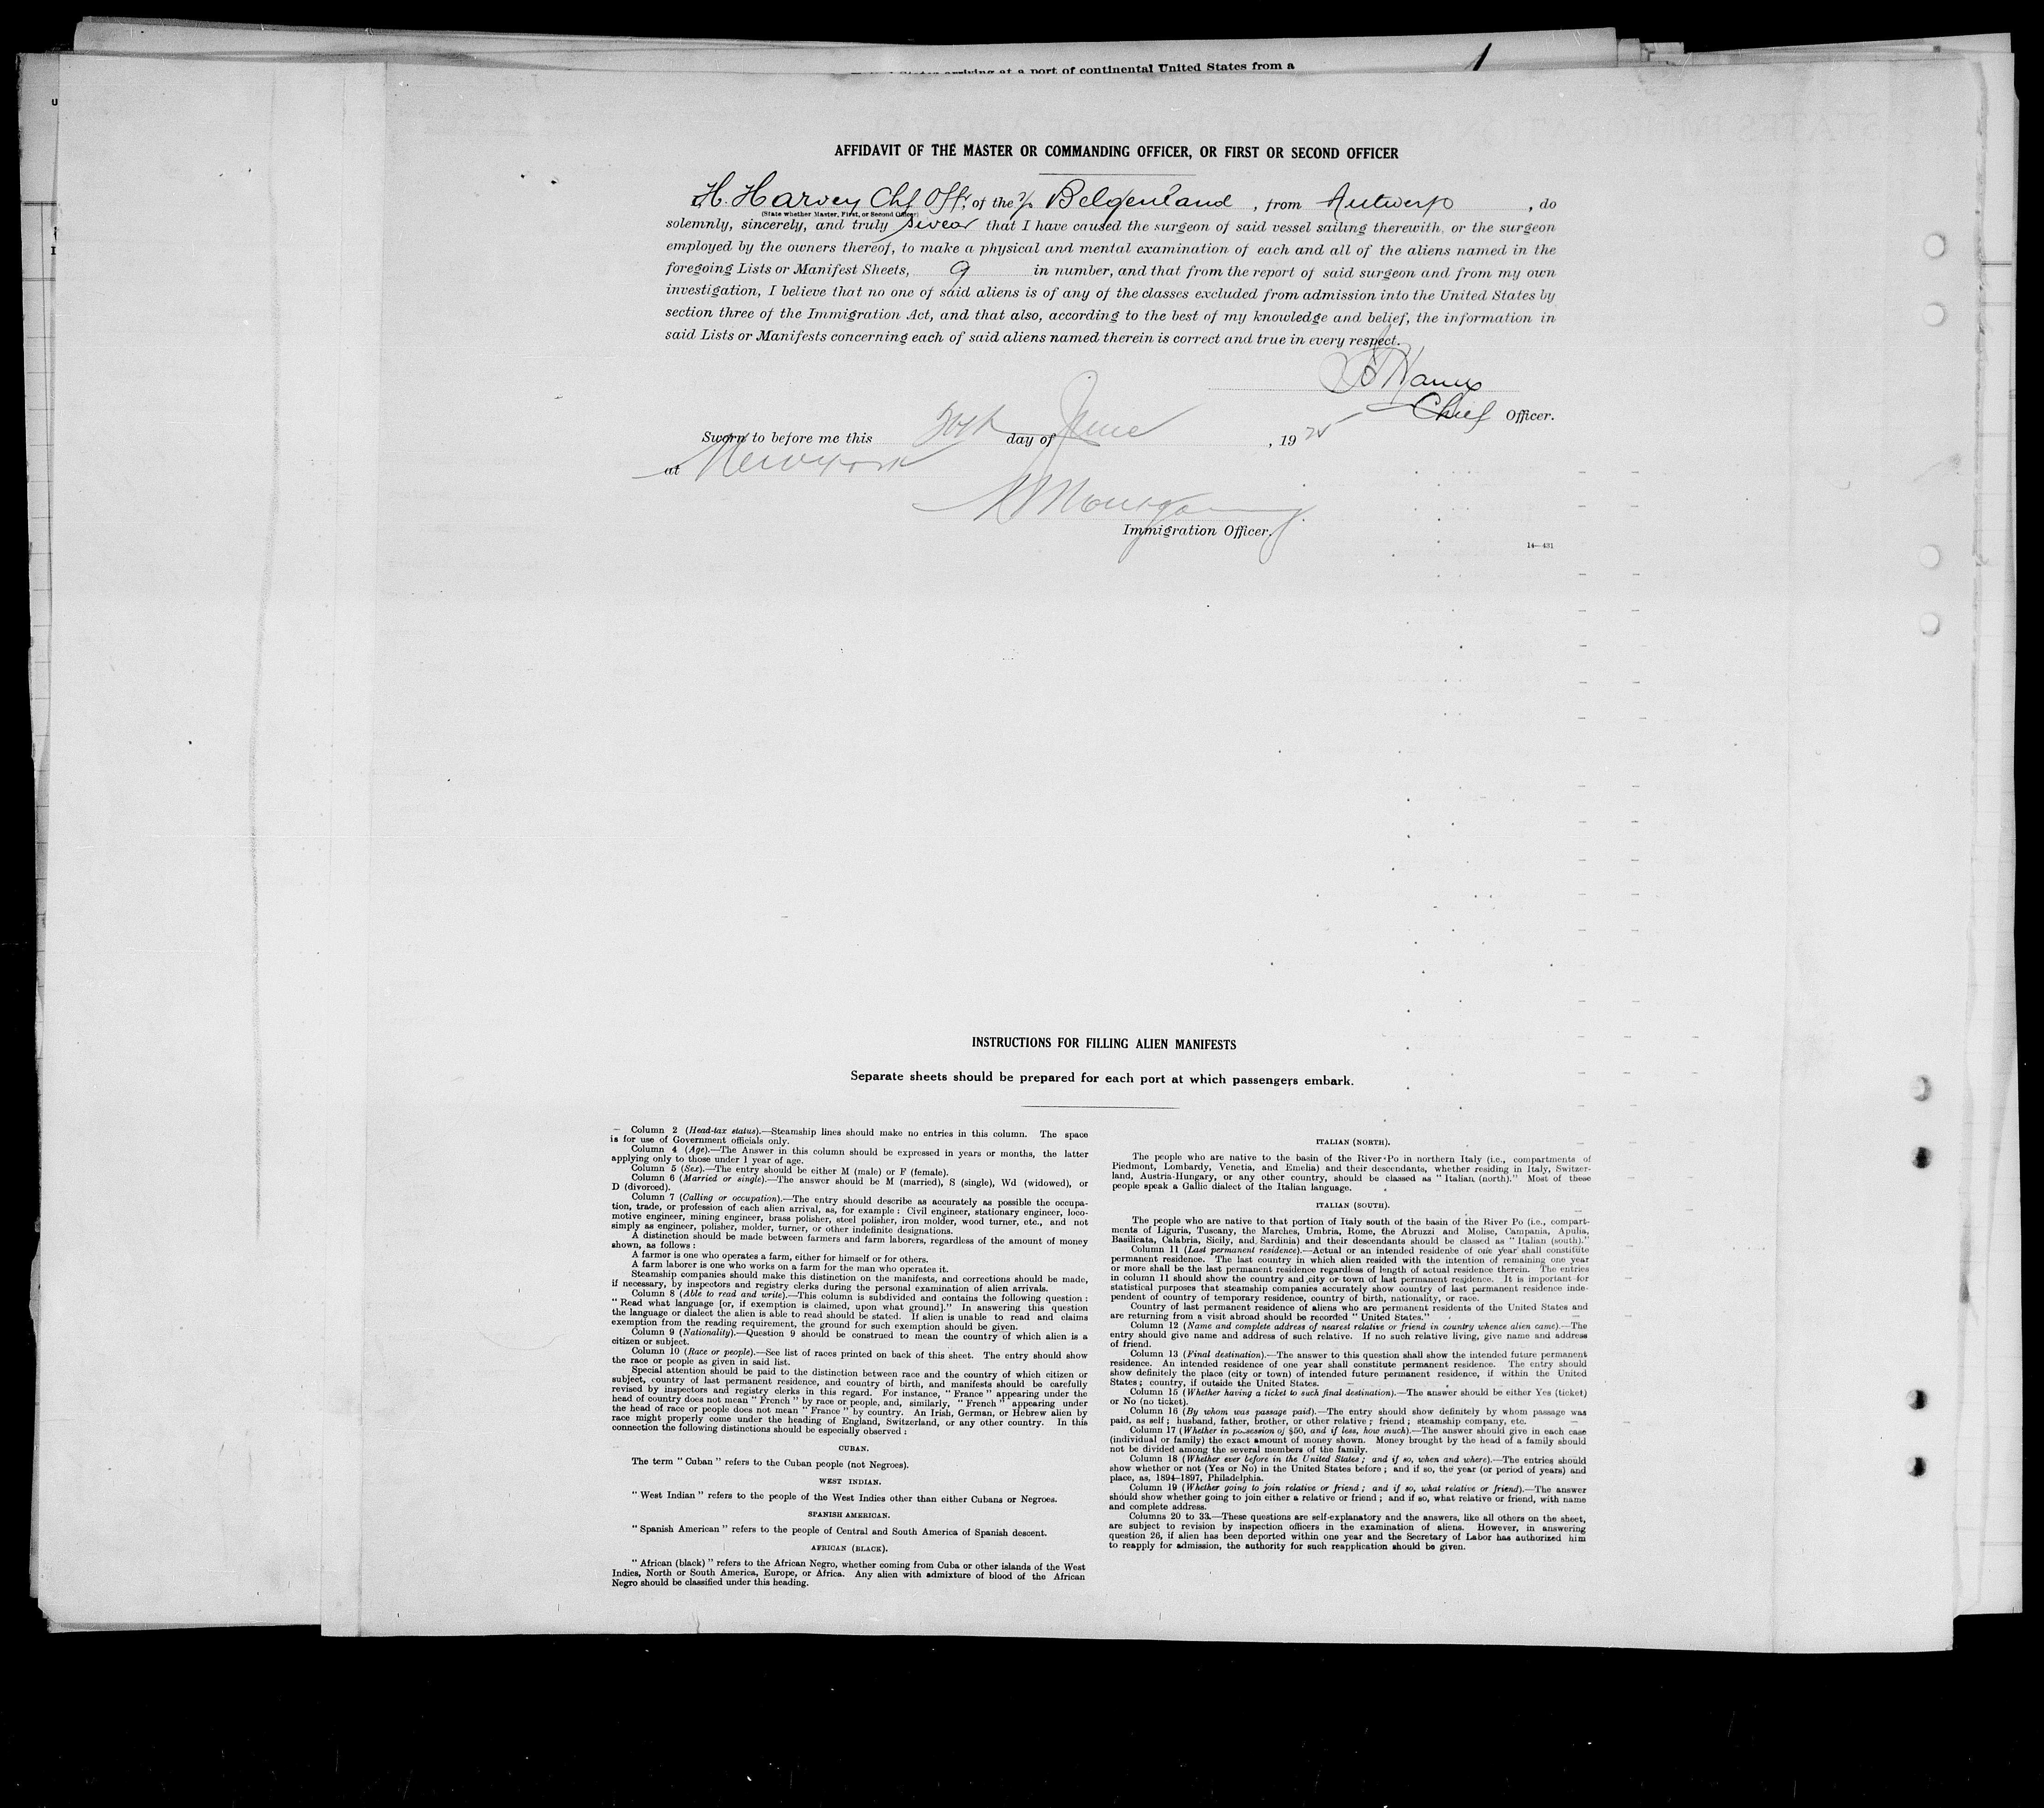 arriving at a port of continental United States from a
AFFIDAVIT OF THE MASTER OR COMMANDING OFFICER, OR FIRST OR SECOND OFFICER
I, H. Harvey Chf Offr, of the S/S Belgenland, from Antwerp, do
(State whether Master, First, or Second Officer)
solemnly, sincerely, and truly swear that I have caused the surgeon of said vessel sailing therewith, or the surgeon
employed by the owners thereof, to make a physical and mental examination of each and all of the aliens named in the
foregoing Lists or Manifest Sheets, 9 in number, and that from the report of said surgeon and from my own
investigation, I believe that no one of said aliens is of any of the classes excluded from admission into the United States by
section three of the Immigration Act, and that also, according to the best of my knowledge and belief, the information in
said Lists or Manifests concerning each of said aliens named therein is correct and true in every respect.
Chief Officer.
Sworn to before me this day of June, 1925
at New York
Immigration Officer.
14—431
INSTRUCTIONS FOR FILLING ALIEN MANIFESTS
Separate sheets should be prepared for each port at which passengers embark.
Column 2 (Head-tax status).—Steamship lines should make no entries in this column. The space
is for use of Government officials only.
Column 4 (Age).—The Answer in this column should be expressed in years or months, the latter
applying only to those under 1 year of age.
Column 5 (Sex).—The entry should be either M (male) or F (female).
Column 6 (Married or single).—The answer should be M (married), S (single), Wd (widowed), or
D (divorced).
Column 7 (Calling or occupation).—The entry should describe as accurately as possible the occupa-
tion, trade, or profession of each alien arrival, as, for example: Civil engineer, stationary engineer, loco-
motive engineer, mining engineer, brass polisher, steel polisher, iron molder, wood turner, etc., and not
simply as engineer, polisher, molder, turner, or other indefinite designations.
A distinction should be made between farmers and farm laborers, regardless of the amount of money
shown, as follows:
A farmer is one who operates a farm, either for himself or for others.
A farm laborer is one who works on a farm for the man who operates it.
Steamship companies should make this distinction on the manifests, and corrections should be made,
if necessary, by inspectors and registry clerks during the personal examination of alien arrivals.
Column 8 (Able to read and write).—This column is subdivided and contains the following question:
"Read what language [or, if exemption is claimed, upon what ground]." In answering this question
the language or dialect the alien is able to read should be stated. If alien is unable to read and claims
exemption from the reading requirement, the ground for such exemption should be given.
Column 9 (Nationality).—Question 9 should be construed to mean the country of which alien is a
citizen or subject.
Column 10 (Race or people).—See list of races printed on back of this sheet. The entry should show
the race or people as given in said list.
Special attention should be paid to the distinction between race and the country of which citizen or
subject, country of last permanent residence, and country of birth, and manifests should be carefully
revised by inspectors and registry clerks in this regard. For instance, "France" appearing under the
head of country does not mean "French" by race or people, and, similarly, "French" appearing under
the head of race or people does not mean "France" by country. An Irish, German, or Hebrew alien by
race might properly come under the heading of England, Switzerland, or any other country. In this
connection the following distinctions should be especially observed:
CUBAN.
The term "Cuban" refers to the Cuban people (not Negroes).
WEST INDIAN.
"West Indian" refers to the people of the West Indies other than either Cubans or Negroes.
SPANISH AMERICAN.
"Spanish American" refers to the people of Central and South America of Spanish descent.
AFRICAN (BLACK).
"African (black)" refers to the African Negro, whether coming from Cuba or other islands of the West
Indies, North or South America, Europe, or Africa. Any alien with admixture of blood of the African
Negro should be classified under this heading.
ITALIAN (NORTH).
The people who are native to the basin of the River Po in northern Italy (i.e., compartments of
Piedmont, Lombardy, Venetia, and Emelia) and their descendants, whether residing in Italy, Switzer-
land, Austria-Hungary, or any other country, should be classed as "Italian (north)." Most of these
people speak a Gallic dialect of the Italian language.
ITALIAN (SOUTH).
The people who are native to that portion of Italy south of the basin of the River Po (i.e., compart-
ments of Liguria, Tuscany, the Marches, Umbria, Rome, the Abruzzi and Molise, Campania, Apulia,
Basilicata, Calabria, Sicily, and Sardinia) and their descendants should be classed as "Italian (south)."
Column 11 (Last permanent residence).—Actual or an intended residence of one year shall constitute
permanent residence. The last country in which alien resided with the intention of remaining one year
or more shall be the last permanent residence regardless of length of actual residence therein. The entries
in column 11 should show the country and city or town of last permanent residence. It is important for
statistical purposes that steamship companies accurately show country of last permanent residence inde-
pendent of country of temporary residence, country of birth, nationality, or race.
Country of last permanent residence of aliens who are permanent residents of the United States and
are returning from a visit abroad should be recorded "United States."
Column 12 (Name and complete address of nearest relative or friend in country whence alien came).—The
entry should give name and address of such relative. If no such relative living, give name and address
of friend.
Column 13 (Final destination).—The answer to this question shall show the intended future permanent
residence. An intended residence of one year shall constitute permanent residence. The entry should
show definitely the place (city or town) of intended future permanent residence, if within the United
States; country, if outside the United States.
Column 15 (Whether having a ticket to such final destination).—The answer should be either Yes (ticket)
or No (no ticket).
Column 16 (By whom was passage paid).—The entry should show definitely by whom passage was
paid, as self; husband, father, brother, or other relative; friend; steamship company, etc.
Column 17 (Whether in possession of $50, and if less, how much).—The answer should give in each case
(individual or family) the exact amount of money shown. Money brought by the head of a family should
not be divided among the several members of the family.
Column 18 (Whether ever before in the United States; and if so, when and where).—The entries should
show whether or not (Yes or No) in the United States before; and if so, the year (or period of years) and
place, as, 1894–1897, Philadelphia.
Column 19 (Whether going to join relative or friend; and if so, what relative or friend).—The answer
should show whether going to join either a relative or friend; and if so, what relative or friend, with name
and complete address.
Columns 20 to 33.—These questions are self-explanatory and the answers, like all others on the sheet,
are subject to revision by inspection officers in the examination of aliens. However, in answering
question 26, if alien has been deported within one year and the Secretary of Labor has authorized him
to reapply for admission, the authority for such reapplication should be given.